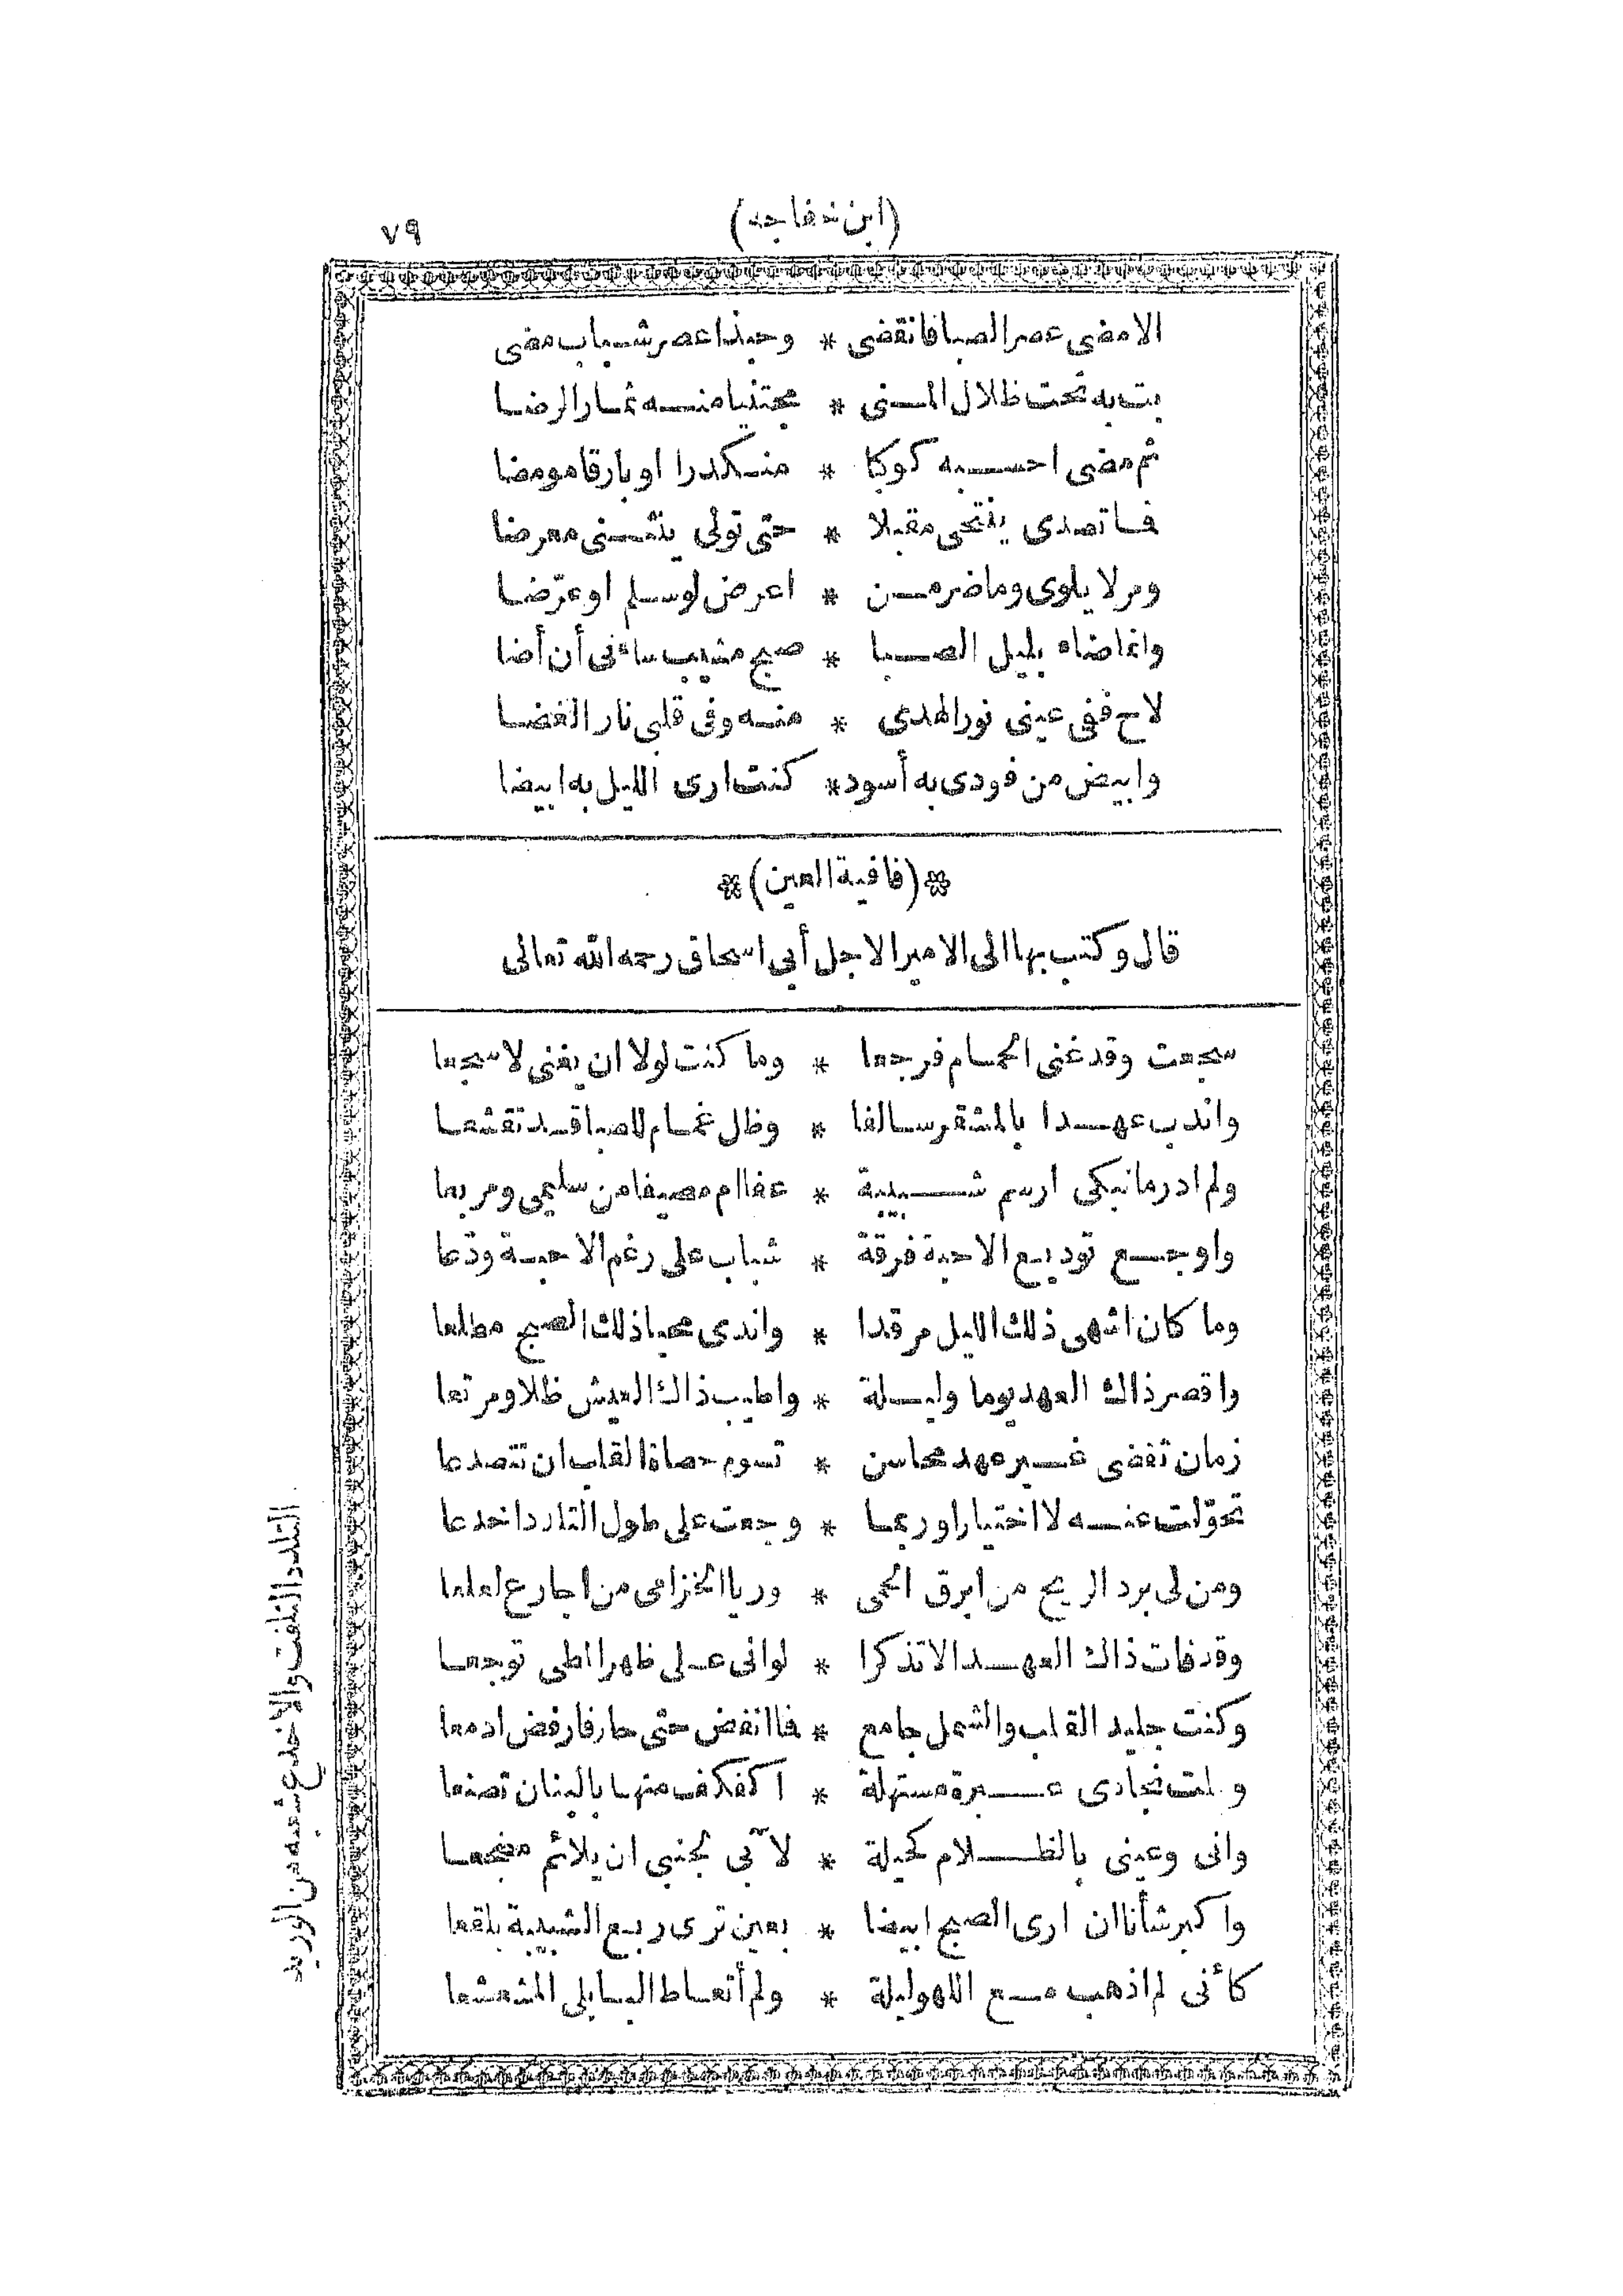 (ابن خفاجه)
٧٩
الا مضى عصر الصبا فانقضى * وحبذا عصر شباب مضى
بت به تحت ظلال المنى * مجتنيا منه ثمار الرضا
ثم مضى احسبه كوكبا * منكدرا او بارقا مومضا
فما تصدى ينتحى مقبلا * حتى تولى ينثنى معرضا
ومر لا يلوى وما ضر من * اعرض لو سلم او عرّضا
وانما ضاء بليل الصبا * صبح مشيب ساءنى أن أضا
لاح ففى عينى نور الهدى * منه وفى قلبى نار الغضا
وابيض من فودى به أسود * كنت ارى الليل به ابيضا
* (قافية العين) *
قال وكتب بها الى الامير الاجل أبى اسحاق رحمه الله تعالى
سجعت وقد غنى الحمام فرجعا * وما كنت لولا ان يغنى لاسجعا
واندب عهدا بالمشقر سالفا * وظل غمام للصبا قد تقشعا
ولم ادر ما نبكى ارسم شبيبة * عفا ام مصيفا من سليمى ومربعا
واوجع توديع الاحبة فرقة * شباب على رغم الاحبة ودّعا
وما كان اشهى ذلك الليل مرقدا * واندى محيا ذلك الصبح مطلعا
واقصر ذاك العهد يوما وليلة * واطيب ذاك العيش ظلا ومرتعا
زمان تقضى غير عهد محاسن * تسوم حصاة القلب ان تتصدعا
تحوّلت عنه لا اختيارا وربما * وجعت على طول التلدد اخدعا
ومن لى ببرد الريح من ابرق الحمى * وريا الخزامى من اجارع لعلعا
وقد فات ذاك العهد الا تذكرا * لوانى على ظهر المطى توجعا
وكنت جليد القلب والشمل جامع * فما انفض حتى حار فارفض ادمعا
وبلت نجادى عبرة مستهلة * اكفكف منها بالبنان تصنعا
وانى وعينى بالظلام كحيلة * لآبى لجنبى ان يلائم مضجعا
واكبر شأنا ان ارى الصبح ابيضا * بعين ترى ربع الشبيبة بلقعا
كأنى لم اذهب مع اللهو ليلة * ولم أتعاط البابلى المشعشعا
التلدد التلفت والاخدع شعبه من الوريد